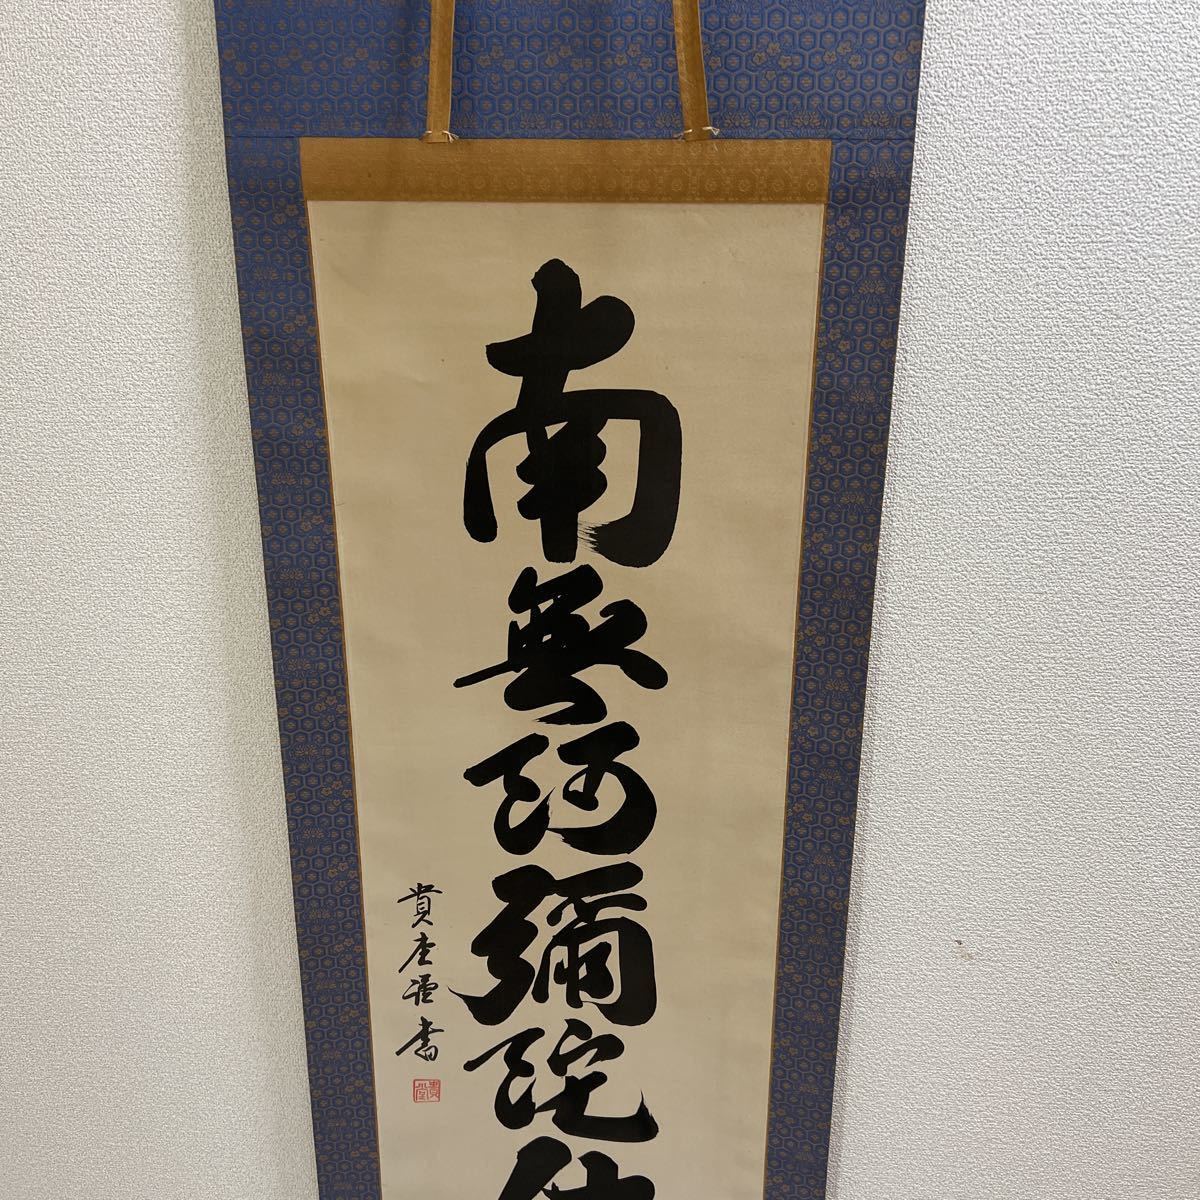 南無阿彌陀仏
貴堂謹書